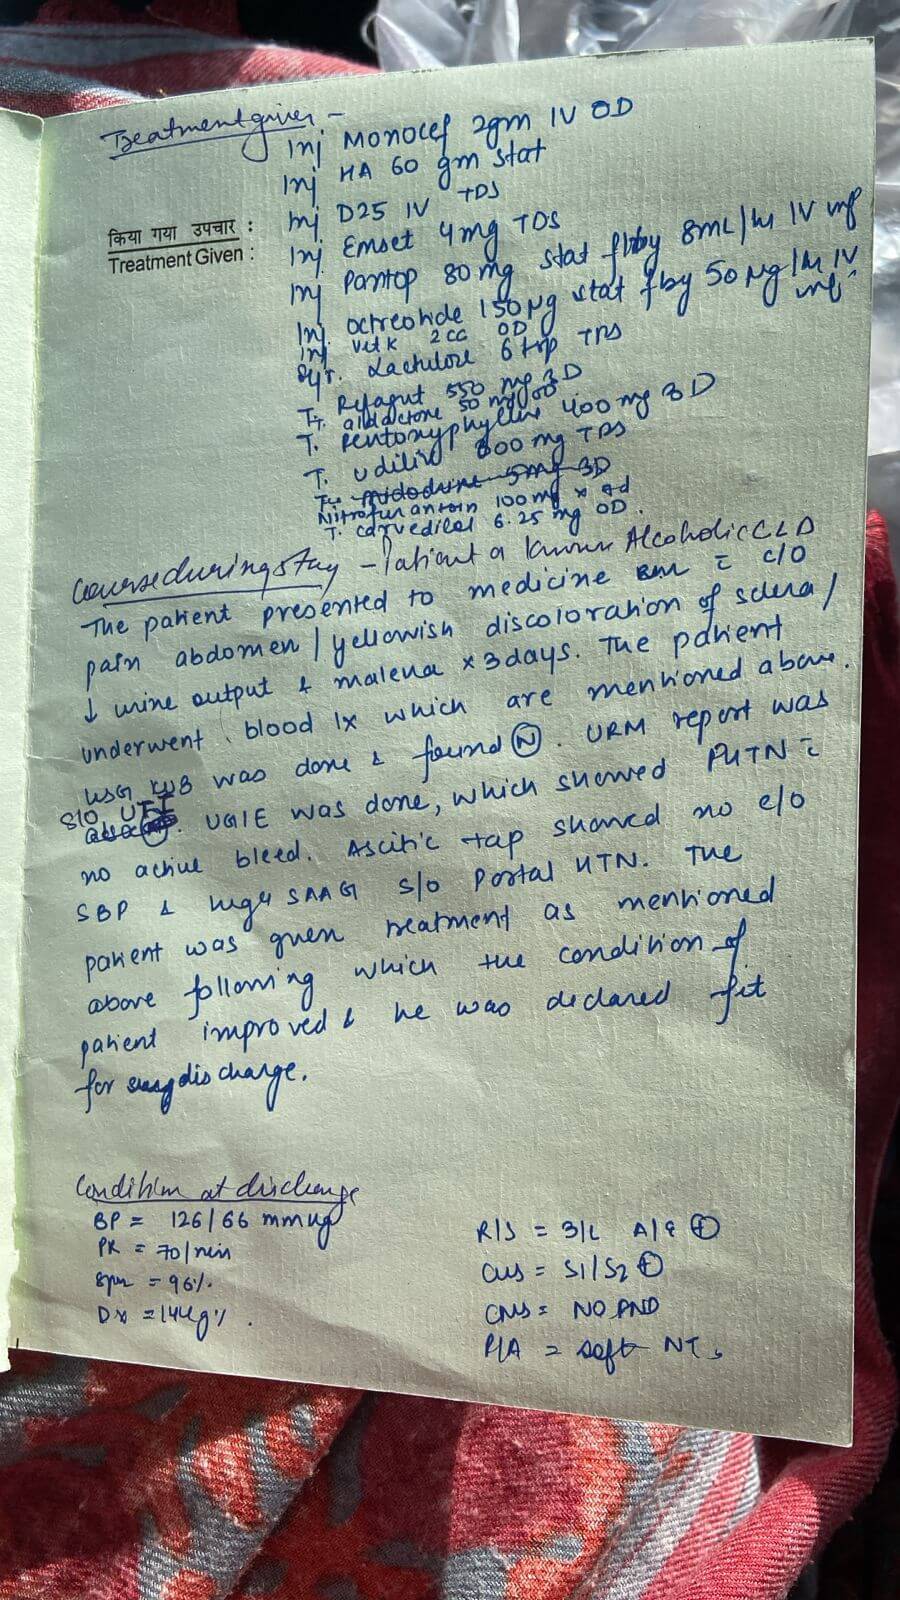 Treatment given -
Inj Monocef 2gm IV OD
Inj HA 60 gm stat
Inj D25 IV TDS
किया गया उपचार :
Treatment Given :
Inj Emset 4mg TDS
Inj Pantop 80mg stat fby 8mL/hr IV inf
Inj. octreotide 150µg stat fby 50µg/hr IV inf
Inj Vit K 2cc OD
Syr. Lactulose 6 tsp TDS
T. Rifagut 550 mg BD
T. aldactone 50 mg OD
T. Pentoxyphylline 400mg BD
T. Udiliv 300mg TDS
T. midodrine 5mg BD
Nitrofurantoin 100mg x
T. carvedilol 6.25 mg OD.
Course during stay - Patient a known Alcoholic CLD
The patient presented to medicine c̄ c/o
pain abdomen / yellowish discoloration of sclera /
↓ urine output & malena x 3 days. The patient
underwent blood Ix which are mentioned above.
USG W/B was done & found Ⓝ. URM report was
s/o UTI. UGIE was done, which showed PHTN c̄
no active bleed. Ascitic tap showed no e/o
SBP & high SAAG s/o Portal HTN. The
patient was given treatment as mentioned
above following which the condition of
patient improved & he was declared fit
for discharge.
Condition at discharge
BP = 126/66 mmHg
PR = 70/min
SpO2 = 96%.
Dx = 144g%.
R/S = B/L A/E ⊕
CVS = S1/S2 ⊕
CNS = NO FND
P/A = soft NT